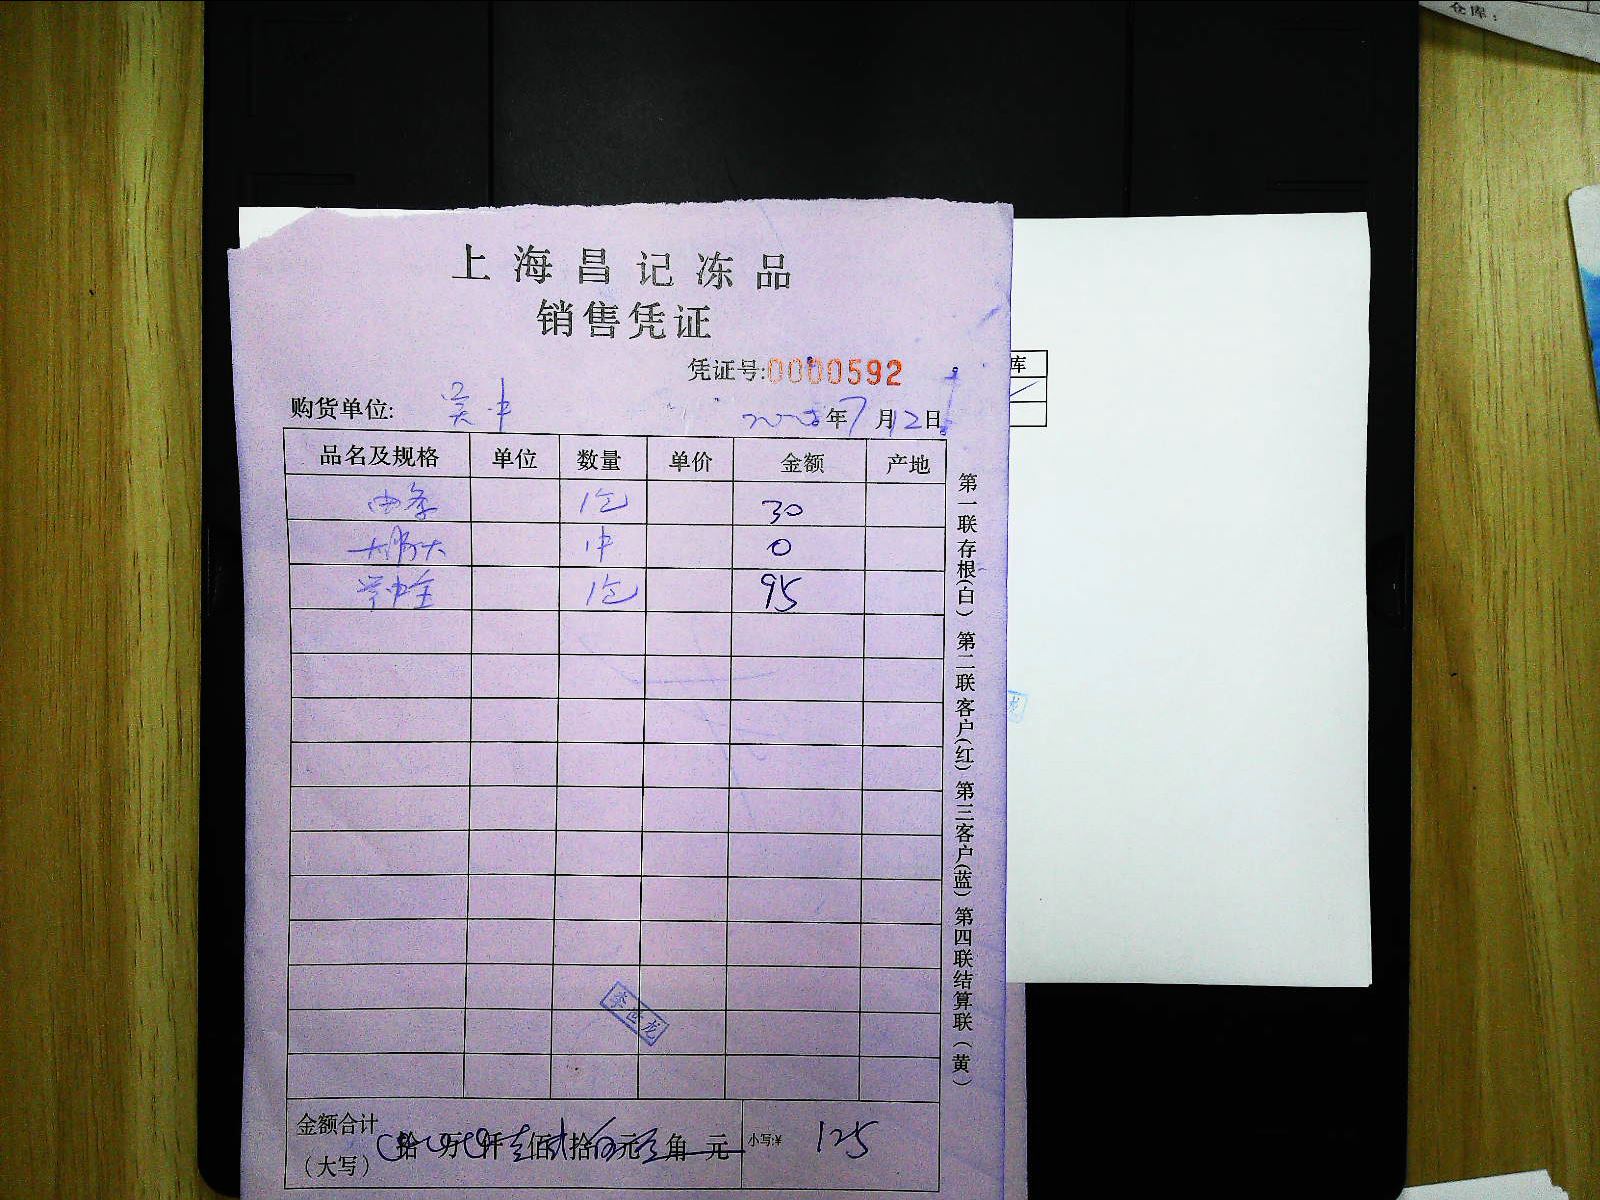 仓库:
上海昌记冻品
销售凭证
凭证号:0000592
库
购货单位: 吴中 年7月12日
品名及规格 单位 数量 单价 金额 产地
1包 30
1件 0
1包 95
第一联存根(白) 第二联客户(红) 第三客户(蓝) 第四联结算联(黄)
李世龙
龙
金额合计
(大写) 拾 万 仟壹佰贰拾伍元 角 元 小写:¥ 125